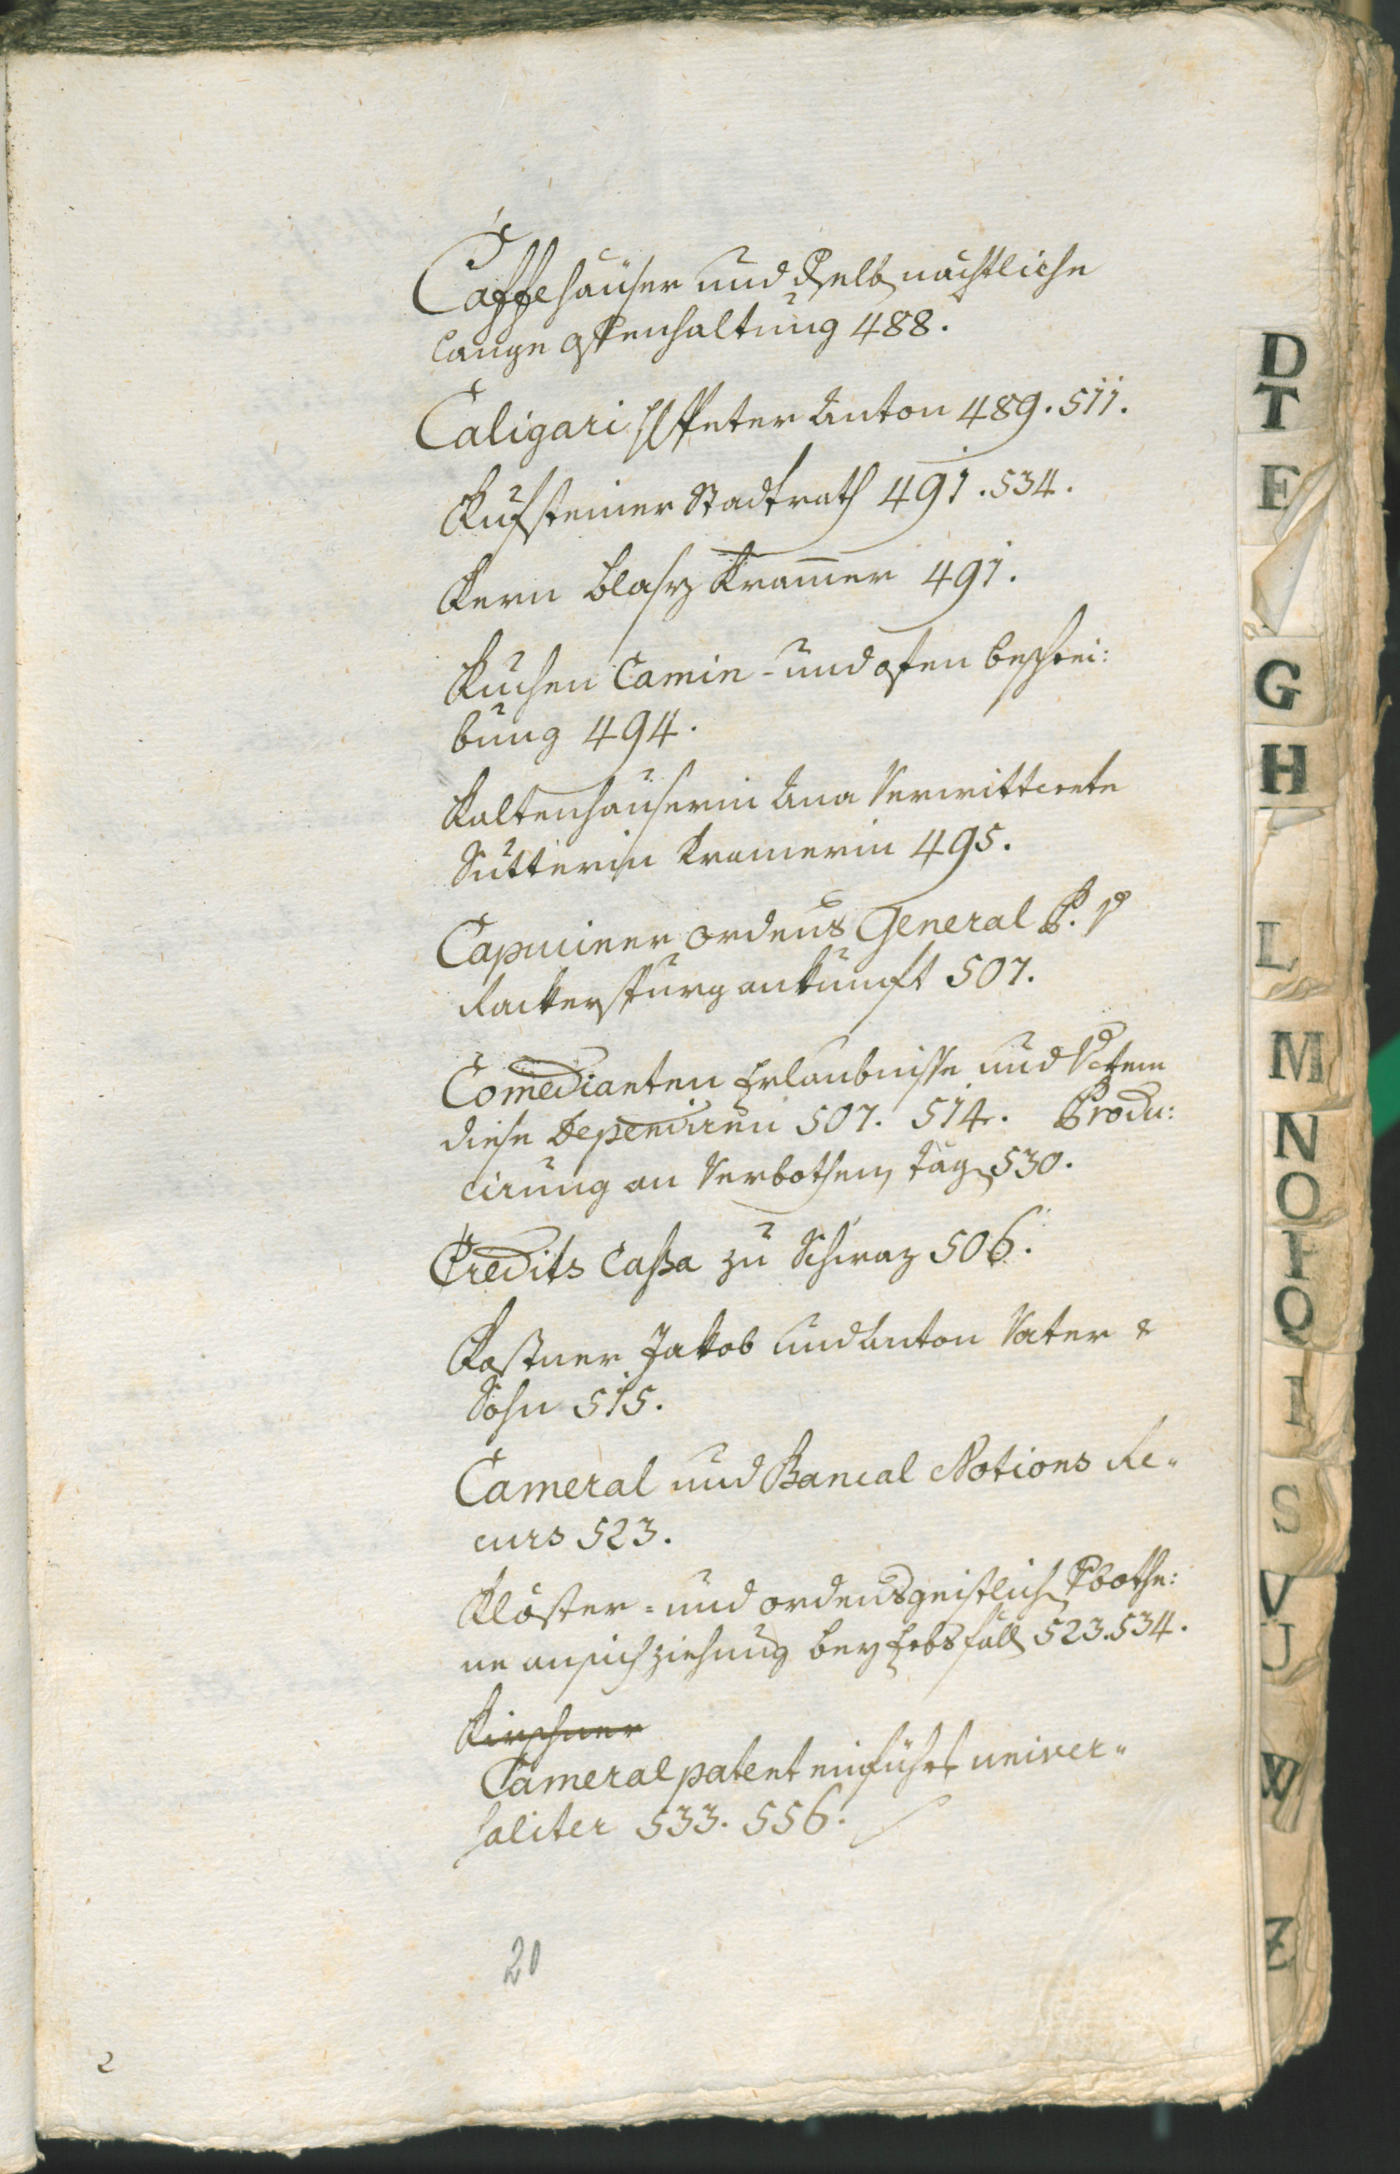 Caffehäuser und deselb nächtliche
lange offenhaltung 488.
Caligari H Peter Anton 489. 511.
Kufsteiner Stadtrath 491. 534.
Kern Blasy Kramer 491.
Kuchen Camin- und ofen beschrei:
bung 494.
Kaltenhauserin Ana Verwittwete
Sutterin Kramerin 495.
Capuciner ordens General P. P
Rackerspurg ankunft 507.
Comedianten Erlaubnisse und
diese Dependiren 507. 514. Produ:
cirung an Verbothen tägen 530.
Credits Cassa zu Schwaz 506.
Kostner Jakob und Anton Vater &
Sohn 515.
Cameral und Bancal Notions Re"
curs 523.
Klöster- und ordensgeistlich
ne ansichziehung bey Erbsfäll 523. 534.
Kirschner
Cameral patent einführt univer"
saliter 533. 556.
20
2
D
T
E
G
H
L
M
N
O
P
Q
S
V
U
W
Z